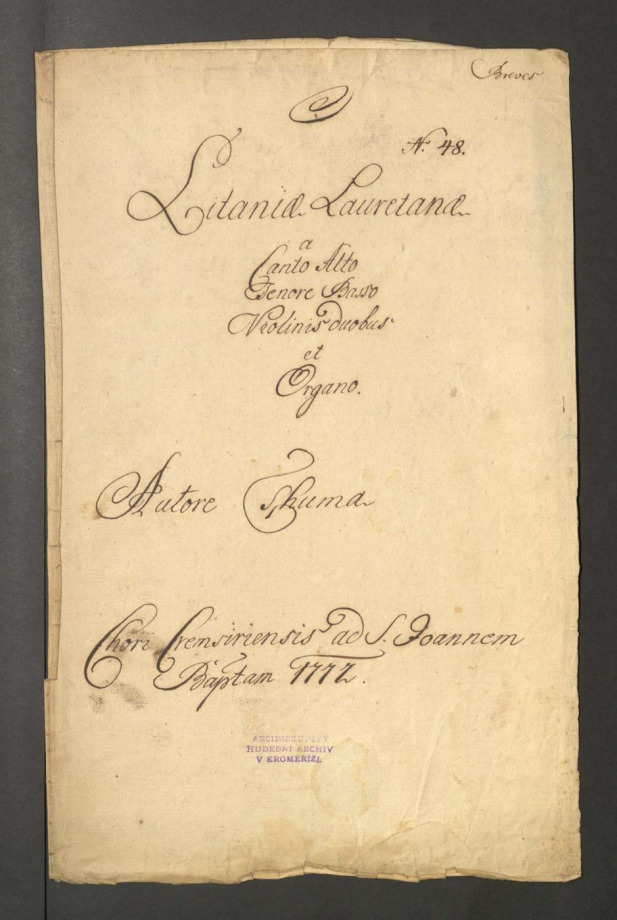 Breves
N. 48.
Litaniæ Lauretanæ
a
Canto Alto
Tenore Basso
Violinis duobus
et
Organo.
Autore Thuma
Chori Cremsiriensis ad S. Joannem
Baptam 1772.
ARCIBISKUPSKÝ
HUDEBNÍ ARCHIV
V KROMĚŘÍŽI.